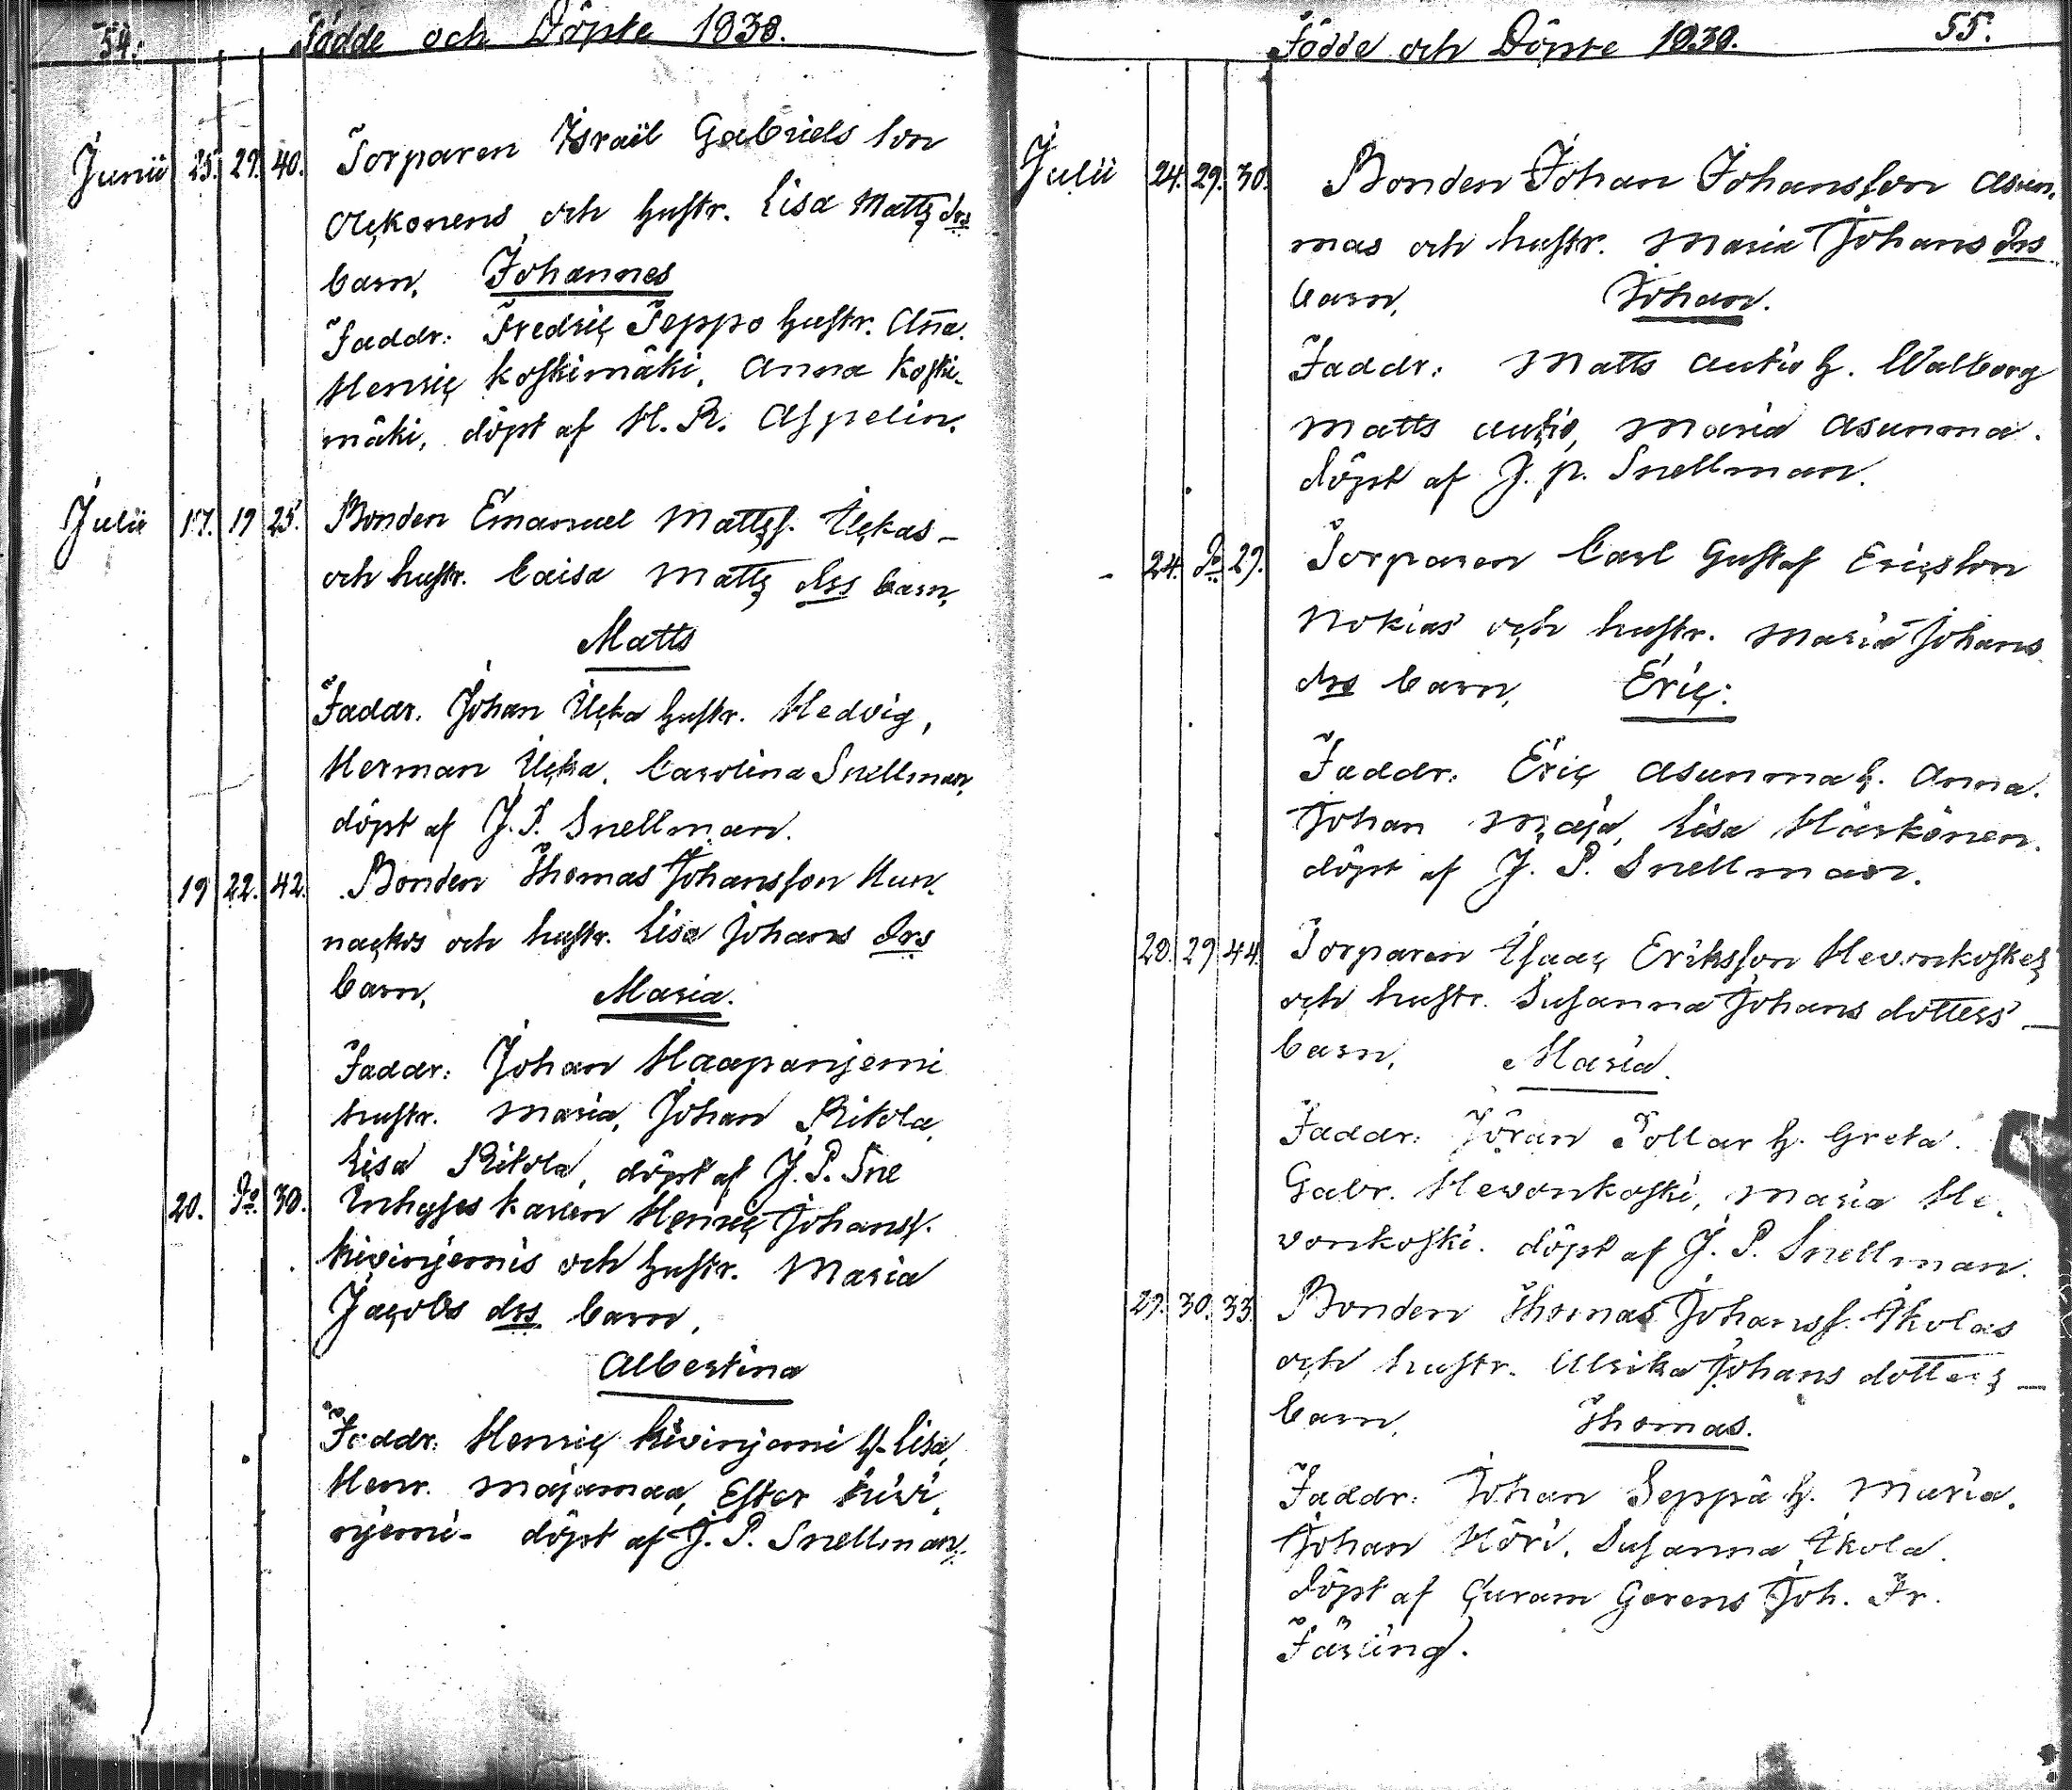 54. Födde och Döpte 1830.
Junii 25. 27. 40. Torparen Israël Gabriels son
och hustr. Lisa Matts drs
barn, Johannes
Faddr: Fredric Seppo hustr. Anna.
Henric Koskimäki, Anna Koski-
mäki, döpt af H. R. Aspelin.
Julii 17. 19 25. Bonden Emanuel Mattss. Ilckas –
och hustr. Caisa Matts drs barn,
Matts
Faddr. Johan Ilcka hustr. Hedvig,
Herman Ilcka, Carolina Snellman,
döpt af J. P. Snellman.
19 22. 42. Bonden Thomas Johansson Hun-
nackos och hustr. Lisa Johans drs
barn, Maria.
Faddr: Johan Haapanjemi
hustr. Maria, Johan Ritola,
Lisa Ritola, döpt af J. P. Sne
20. Do 30. Inhyses karlen Henric Johanss.
Kivinjemis och hustr. Maria
Jacobs drs barn,
Albertina
Faddr: Henric Kivinjemi h. Lisa,
Henr. Majamaa, Ester Kivi-
njemi- döpt af J. P. Snellman.
Födde och Döpte 1830. 55.
Julii 24. 29. 30. Bonden Johan Johansson Asun-
mas och hustr. Maria Johans drs
barn, Johan.
Faddr: Matts Autio h. Walborg
Matts Autio, Maria Asunma.
döpt af J. P. Snellman.
24. Do 29. Torparen Carl Gustaf Ericsson
Nokias och hustr. Maria Johans
drs barn, Eric:
Faddr: Eric Asunma h. Anna.
Johan Maja, Lisa Härkönen.
döpt af J. P. Snellman.
28. 29 44. Torparen Isaac Eriksson Hevonkoskes
och hustr. Susanna Johans dotters –
barn, Maria.
Faddr: Jöran Pollar h. Greta.
Gabr. Hevonkoski, Maria He-
vonkoski. döpt af J. P. Snellman.
29. 30. 33. Bonden Thomas Johanss. Ikolas
och hustr. Ulrika Johans dotters –
barn, Thomas.
Faddr: Johan Seppä h. Maria.
Johan Köri, Susanna Ikola.
döpt af Curam Gerens Joh. Fr.
Färling.